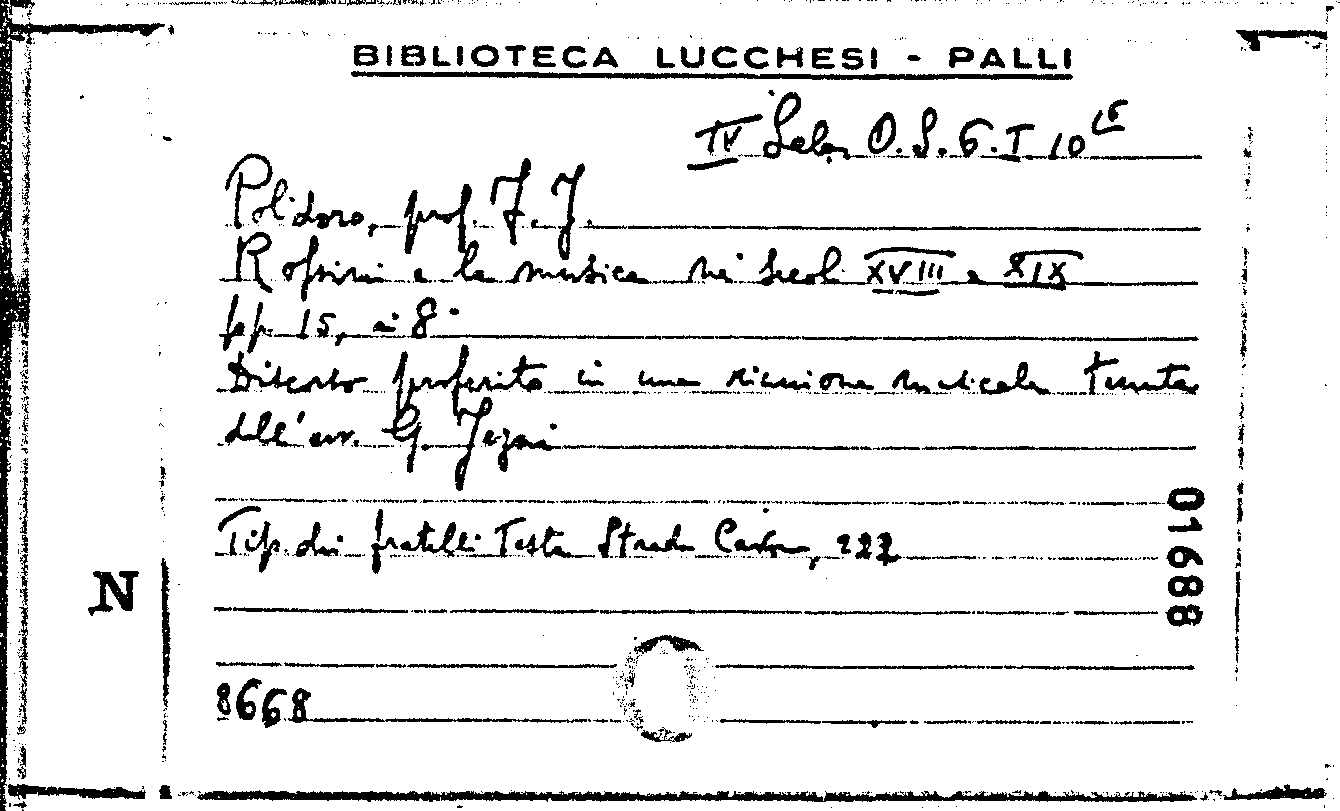 BIBLIOTECA LUCCHESI - PALLI
IV Sala O. S. 6. I 10 16
Polidoro, prof. F. J.
Rossini e la musica nei secoli XVIII e XIX
pp. 15, in 8°
Discorso proferito in una riunione musicale tenuta
dall'avv. G.
Tip. dei fratelli Testa Strada 222
01688
N
8668